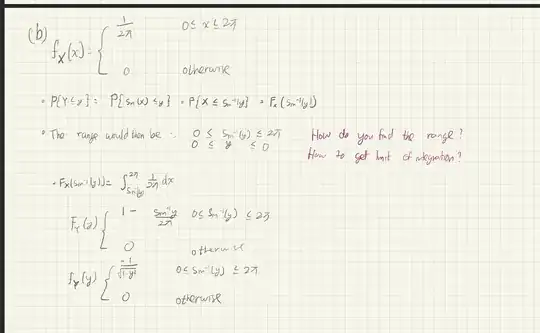 (b) f_X(x) = { 1/2π 0 ≤ x ≤ 2π
0 otherwise
• P[Y ≤ y] = P[Sin(x) ≤ y] = P[X ≤ Sin⁻¹(y)] = F_X(Sin⁻¹(y))
• The range would then be : 0 ≤ Sin⁻¹(y) ≤ 2π
0 ≤ y ≤ 0
How do you find the range?
How to get limit of integration?
• F_X(Sin⁻¹(y)) = ∫_{Sin⁻¹(y)}^{2π} 1/2π dx
F_Y(y) { 1 - Sin⁻¹y/2π 0 ≤ Sin⁻¹(y) ≤ 2π
0 otherwise
f_Y(y) { -1/√(1-y²) 0 ≤ Sin⁻¹(y) ≤ 2π
0 otherwise